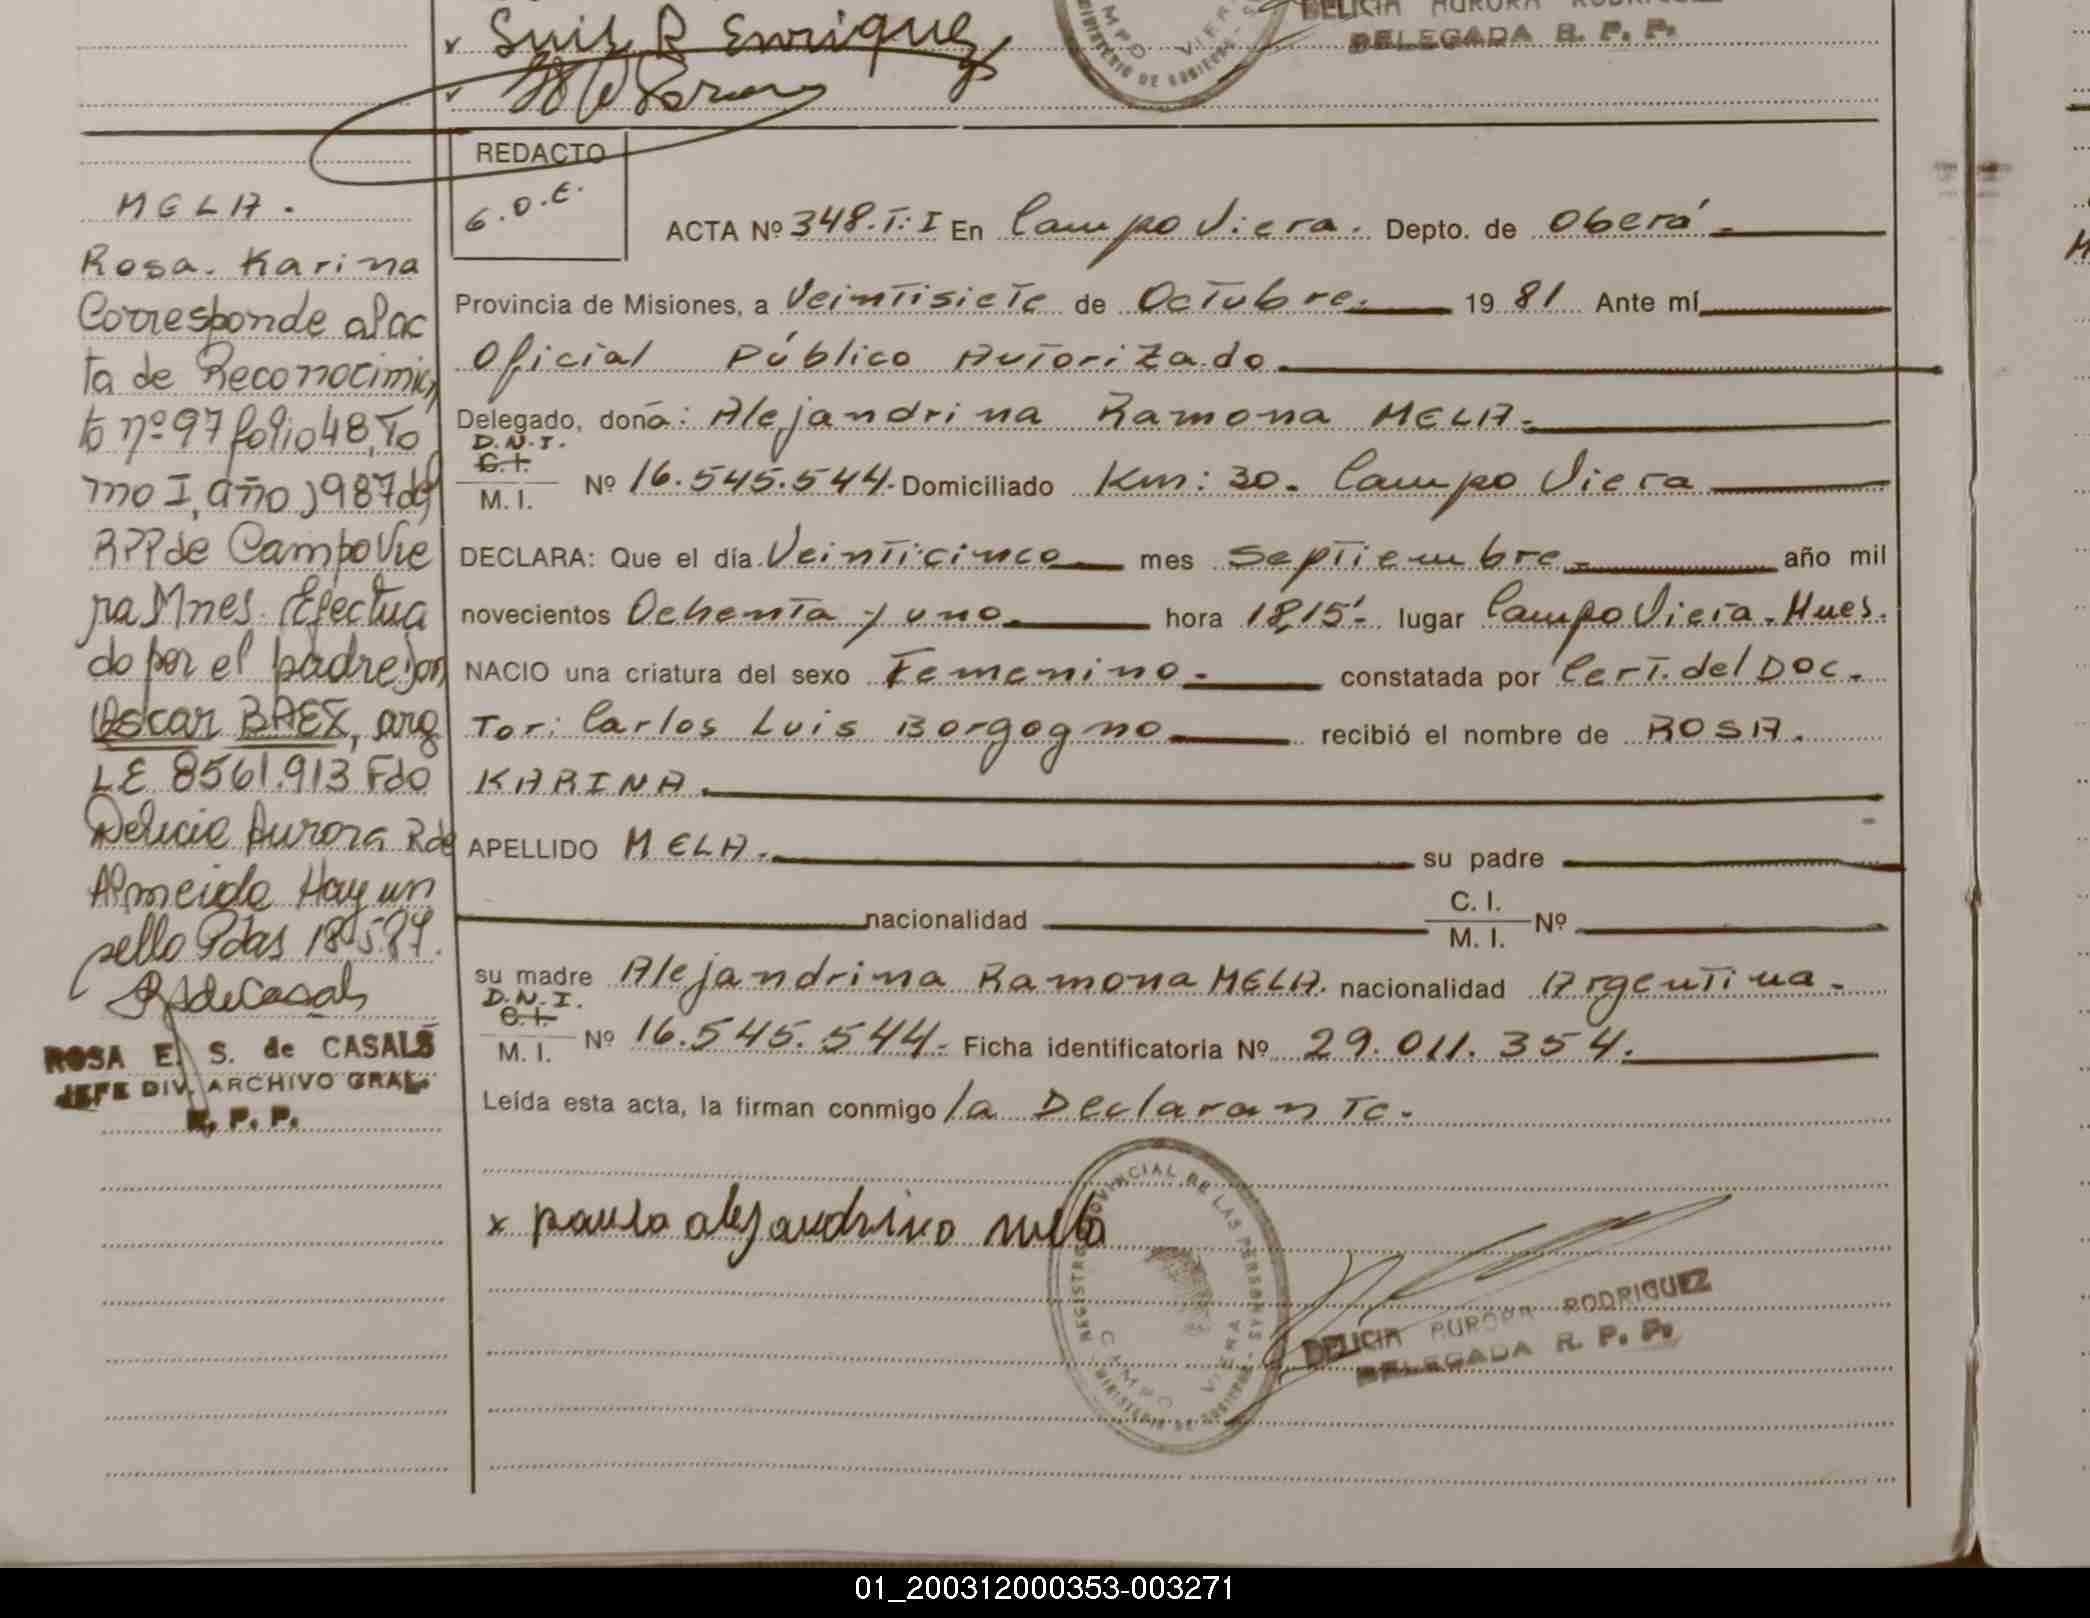 Luis R Enriquez
DELICIA AURORA RODRIGUEZ
DELEGADA R. P. P.
REDACTO
G.O.E.
MELA.
Rosa. Karina
Corresponde al ac
ta de Reconocimien
to nº 97 folio 48, To
mo I, año 1987 del
RPP de Campo Vie
ra Mnes. Efectua
do por el padre Jon
Oscar BAEX, arg
LE 8561.913 Fdo
Delicia Aurora R de
Almeida Hay un
sello Pdas 18.5.87.
RSdeCasals
ROSA E. S. de CASALS
JEFE DIV. ARCHIVO GRAL.
R. P. P.
ACTA Nº 348.T:I En Campo Viera. Depto. de Oberá
Provincia de Misiones, a Veintisiete de Octubre. 19 81 Ante mí
Oficial Público Autorizado
Delegado, doña: Alejandrina Ramona MELA.
D.N.I.
C.I.
M. I. Nº 16.545.544. Domiciliado Km: 30. Campo Viera
DECLARA: Que el día Veinticinco mes Septiembre año mil
novecientos Ochenta y uno hora 18,15'. lugar Campo Viera. Mnes.
NACIO una criatura del sexo Femenino. constatada por Cert. del Doc.
Tor: Carlos Luis Borgogno recibió el nombre de ROSA.
KARINA.
APELLIDO MELA. su padre
nacionalidad C. I.
M. I. Nº
su madre Alejandrina Ramona MELA. nacionalidad Argentina.
D.N.I.
C.I.
M. I. Nº 16.545.544. Ficha identificatoria Nº 29.011.354.
Leída esta acta, la firman conmigo la Declarante.
x paula alejandrina mela
REGISTRO PROVINCIAL DE LAS PERSONAS
CAMPO VIERA
MINISTERIO DE GOBIERNO
DELICIA AURORA RODRIGUEZ
DELEGADA R. P. P.
01_200312000353-003271